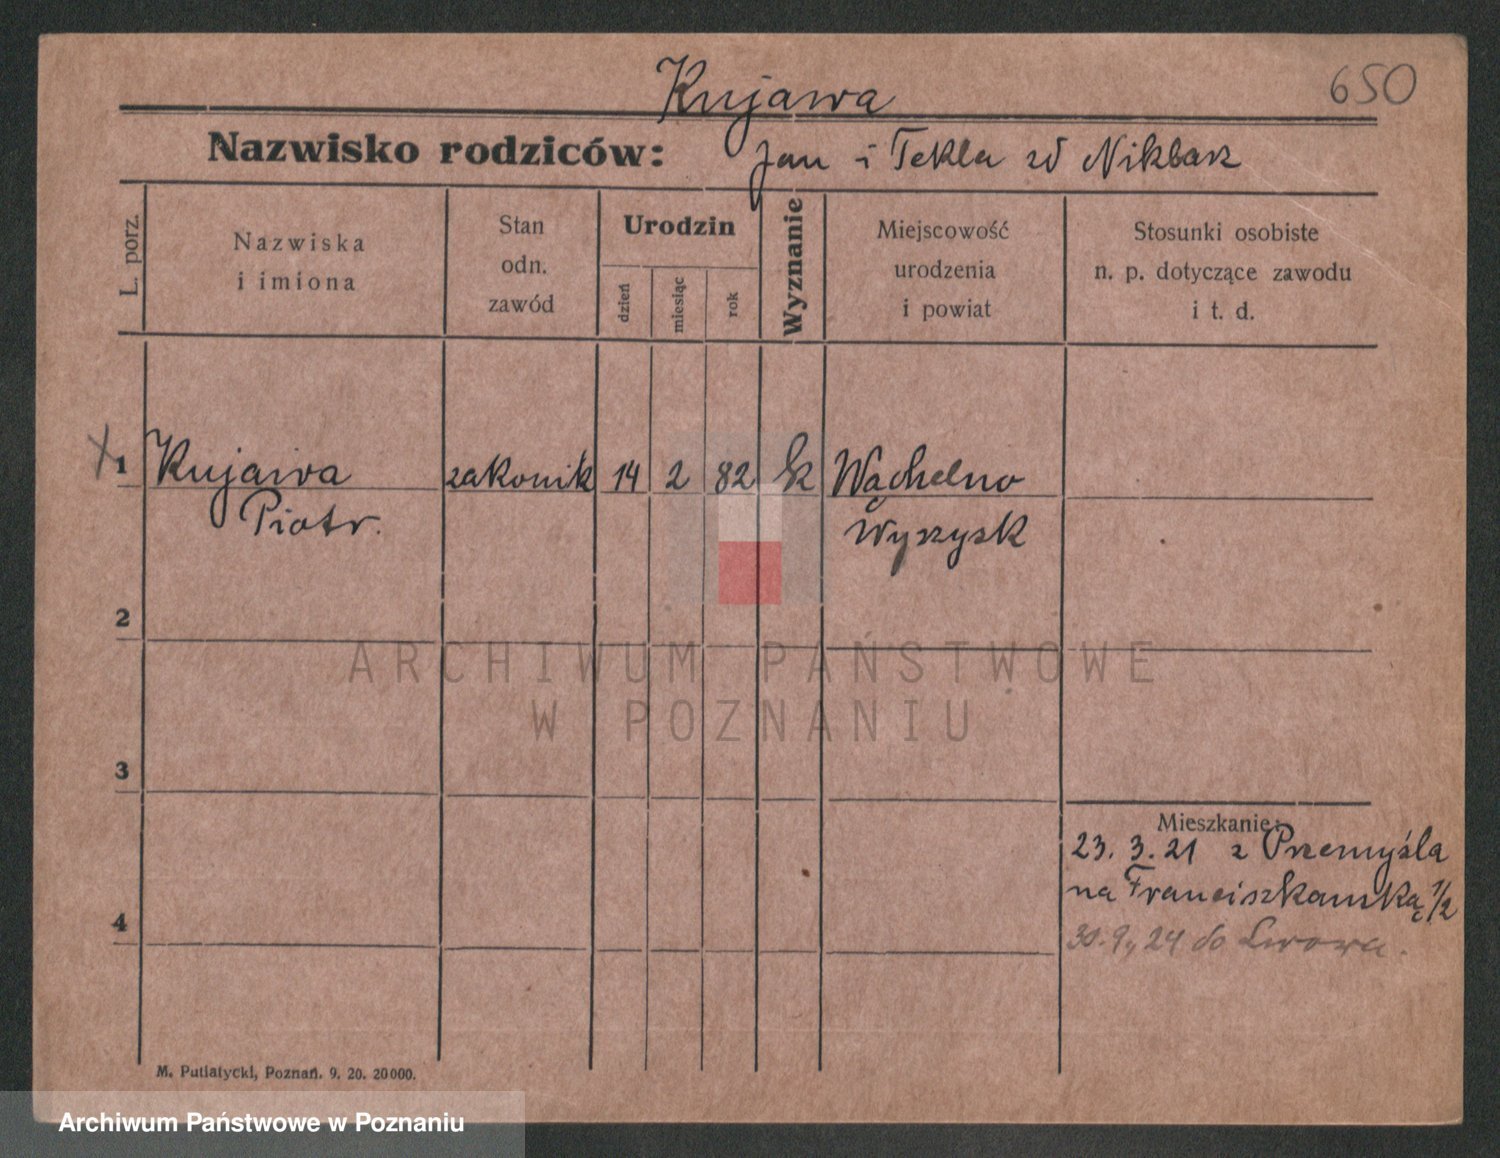 Kujawa
650
Nazwisko rodziców: Jan i Tekla zd Nikbarz
L. porz.
Nazwiska
i imiona
Stan
odn.
zawód
Urodzin
dzień
miesiąc
rok
Wyznanie
Miejscowość
urodzenia
i powiat
Stosunki osobiste
n. p. dotyczące zawodu
i t. d.
1 Kujawa zakonik 14 2 82 k Wąchelno
Piotr. Wyrzysk
2
ARCHIWUM PAŃSTWOWE
W POZNANIU
3
Mieszkanie:
23. 3. 21 z Przemyśla
na Franciszkańską 1/2
4
30. 9, 24 do Lwowa.
M. Putiatycki, Poznań. 9. 20. 20000.
Archiwum Państwowe w Poznaniu